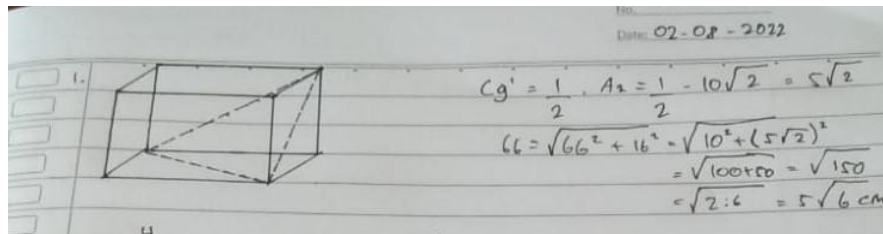 No.
Date: 02-08-2022
1.
Cg' = 1/2 . A2 = 1/2 - 10√2 = 5√2
66 = √66² + 16² = √10² + (5√2)²
= √100+50 = √150
= √2:6 = 5√6 cm